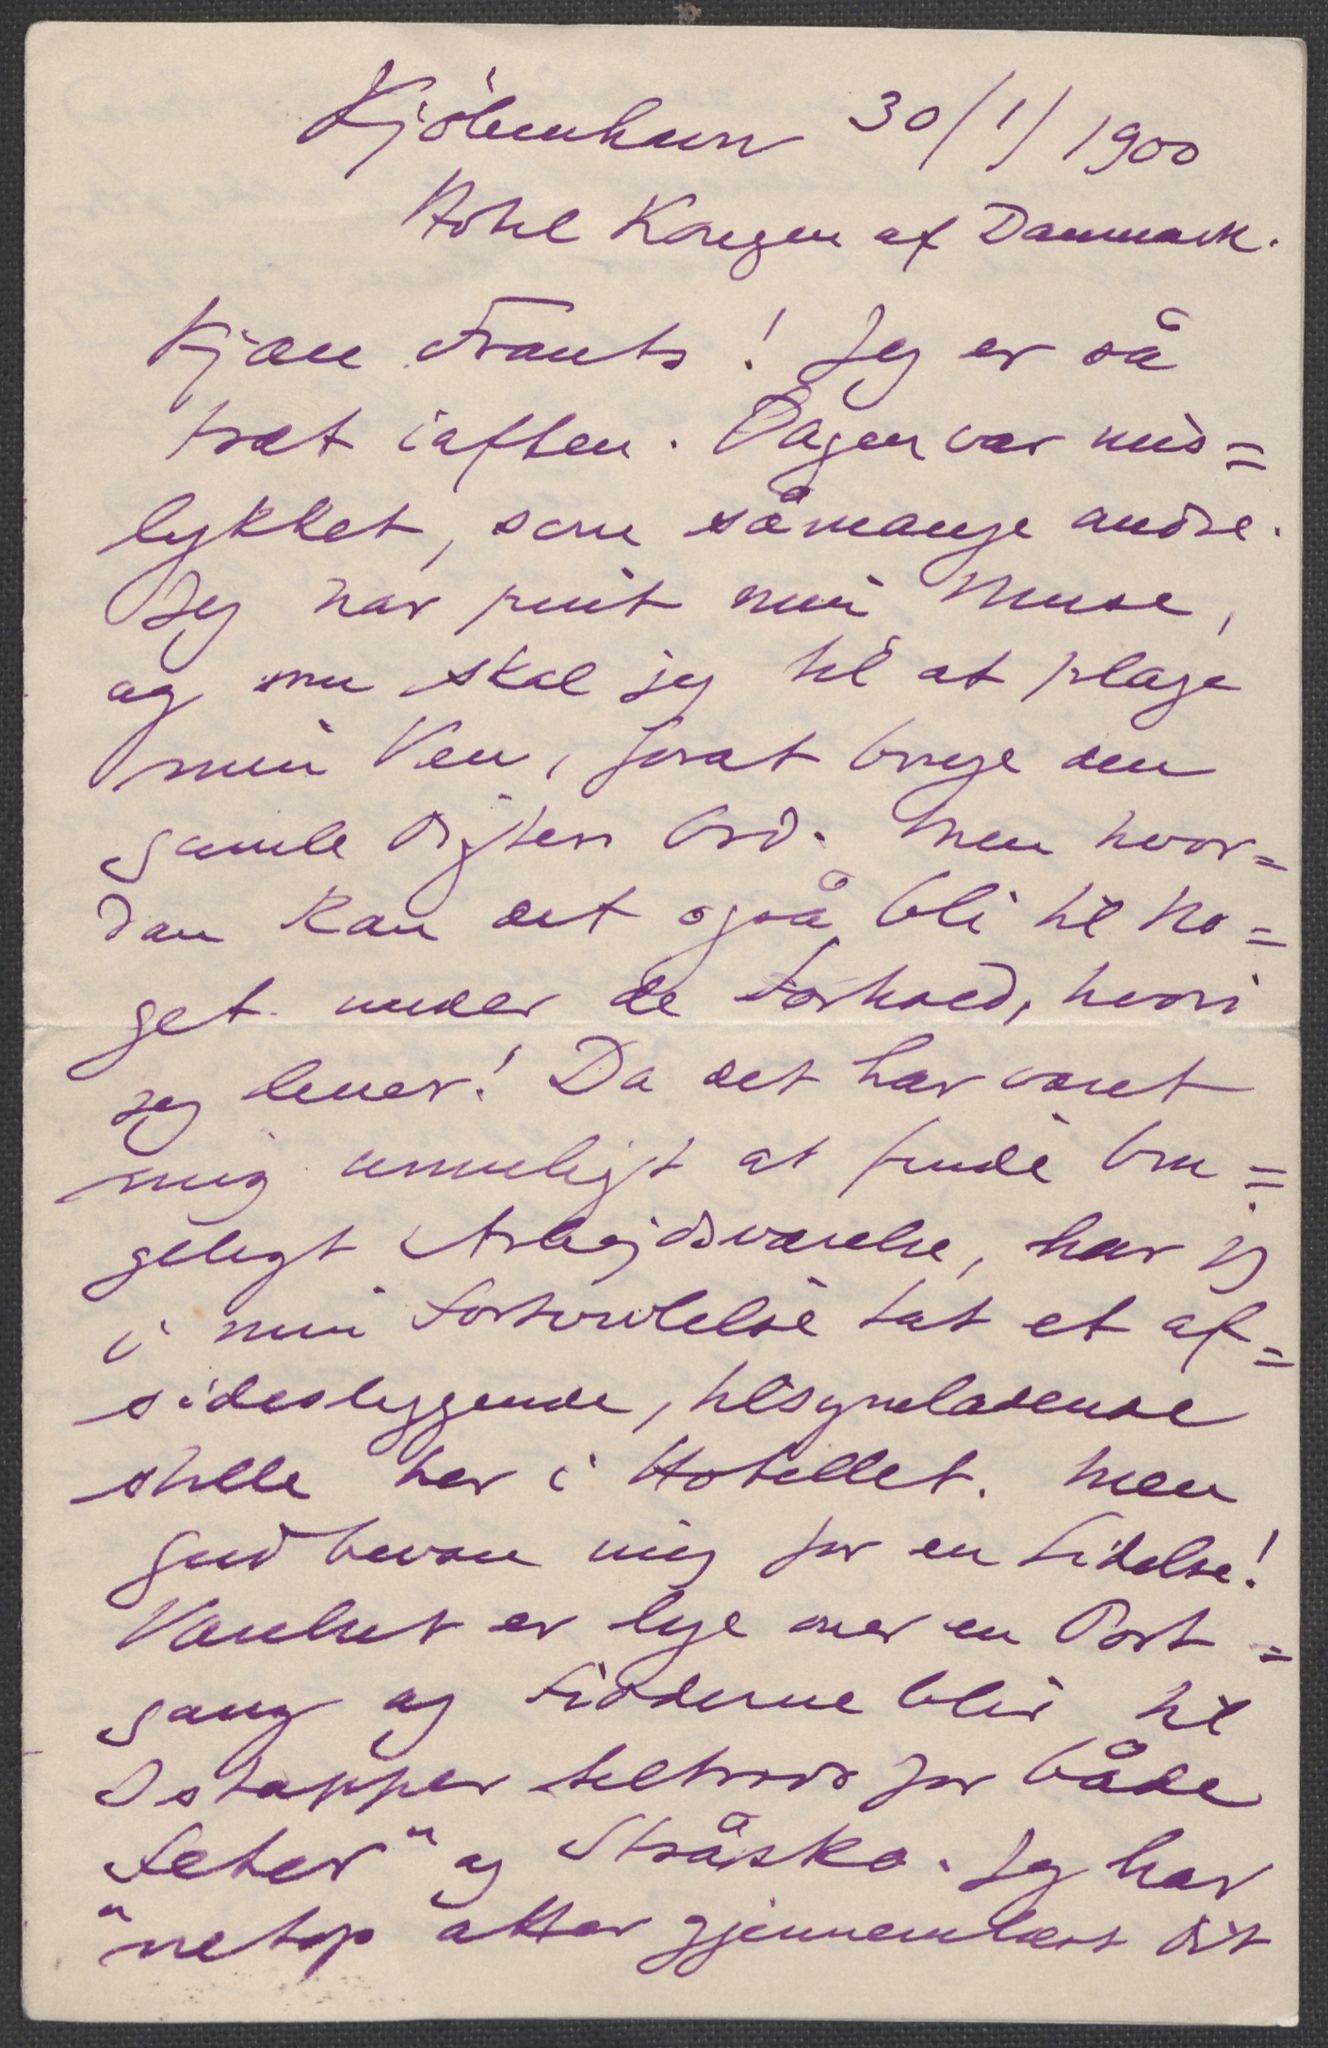 Kjöbenhavn 30/1/1900
Hotel Kongen af Danmark.
Kjære Frants! Jeg er så
træt iaften. Dagen var mis=
lykket, som såmange andre.
Jeg har pint min Muse,
og nu skal jeg til at plage
min Ven, forat bruge den
gamle Digters Ord. Men hvor=
dan kan det også bli til No=
get under de Forhold, hvori
jeg lever! Da det har været
mig umuligt at finde bru=
geligt Arbejdsværelse, har jeg
i min Fortvivlelse tat et af=
sidesliggende, tilsyneladende
stille her i Hotellet. Men
Gud bevare mig for en Lidelse!
Værelset er lige over en Port=
gang og Fødderne blir til
Istapper tiltrods for både
"Feter" og Stråsko. Jeg har
netop atter gjennemlæst dit